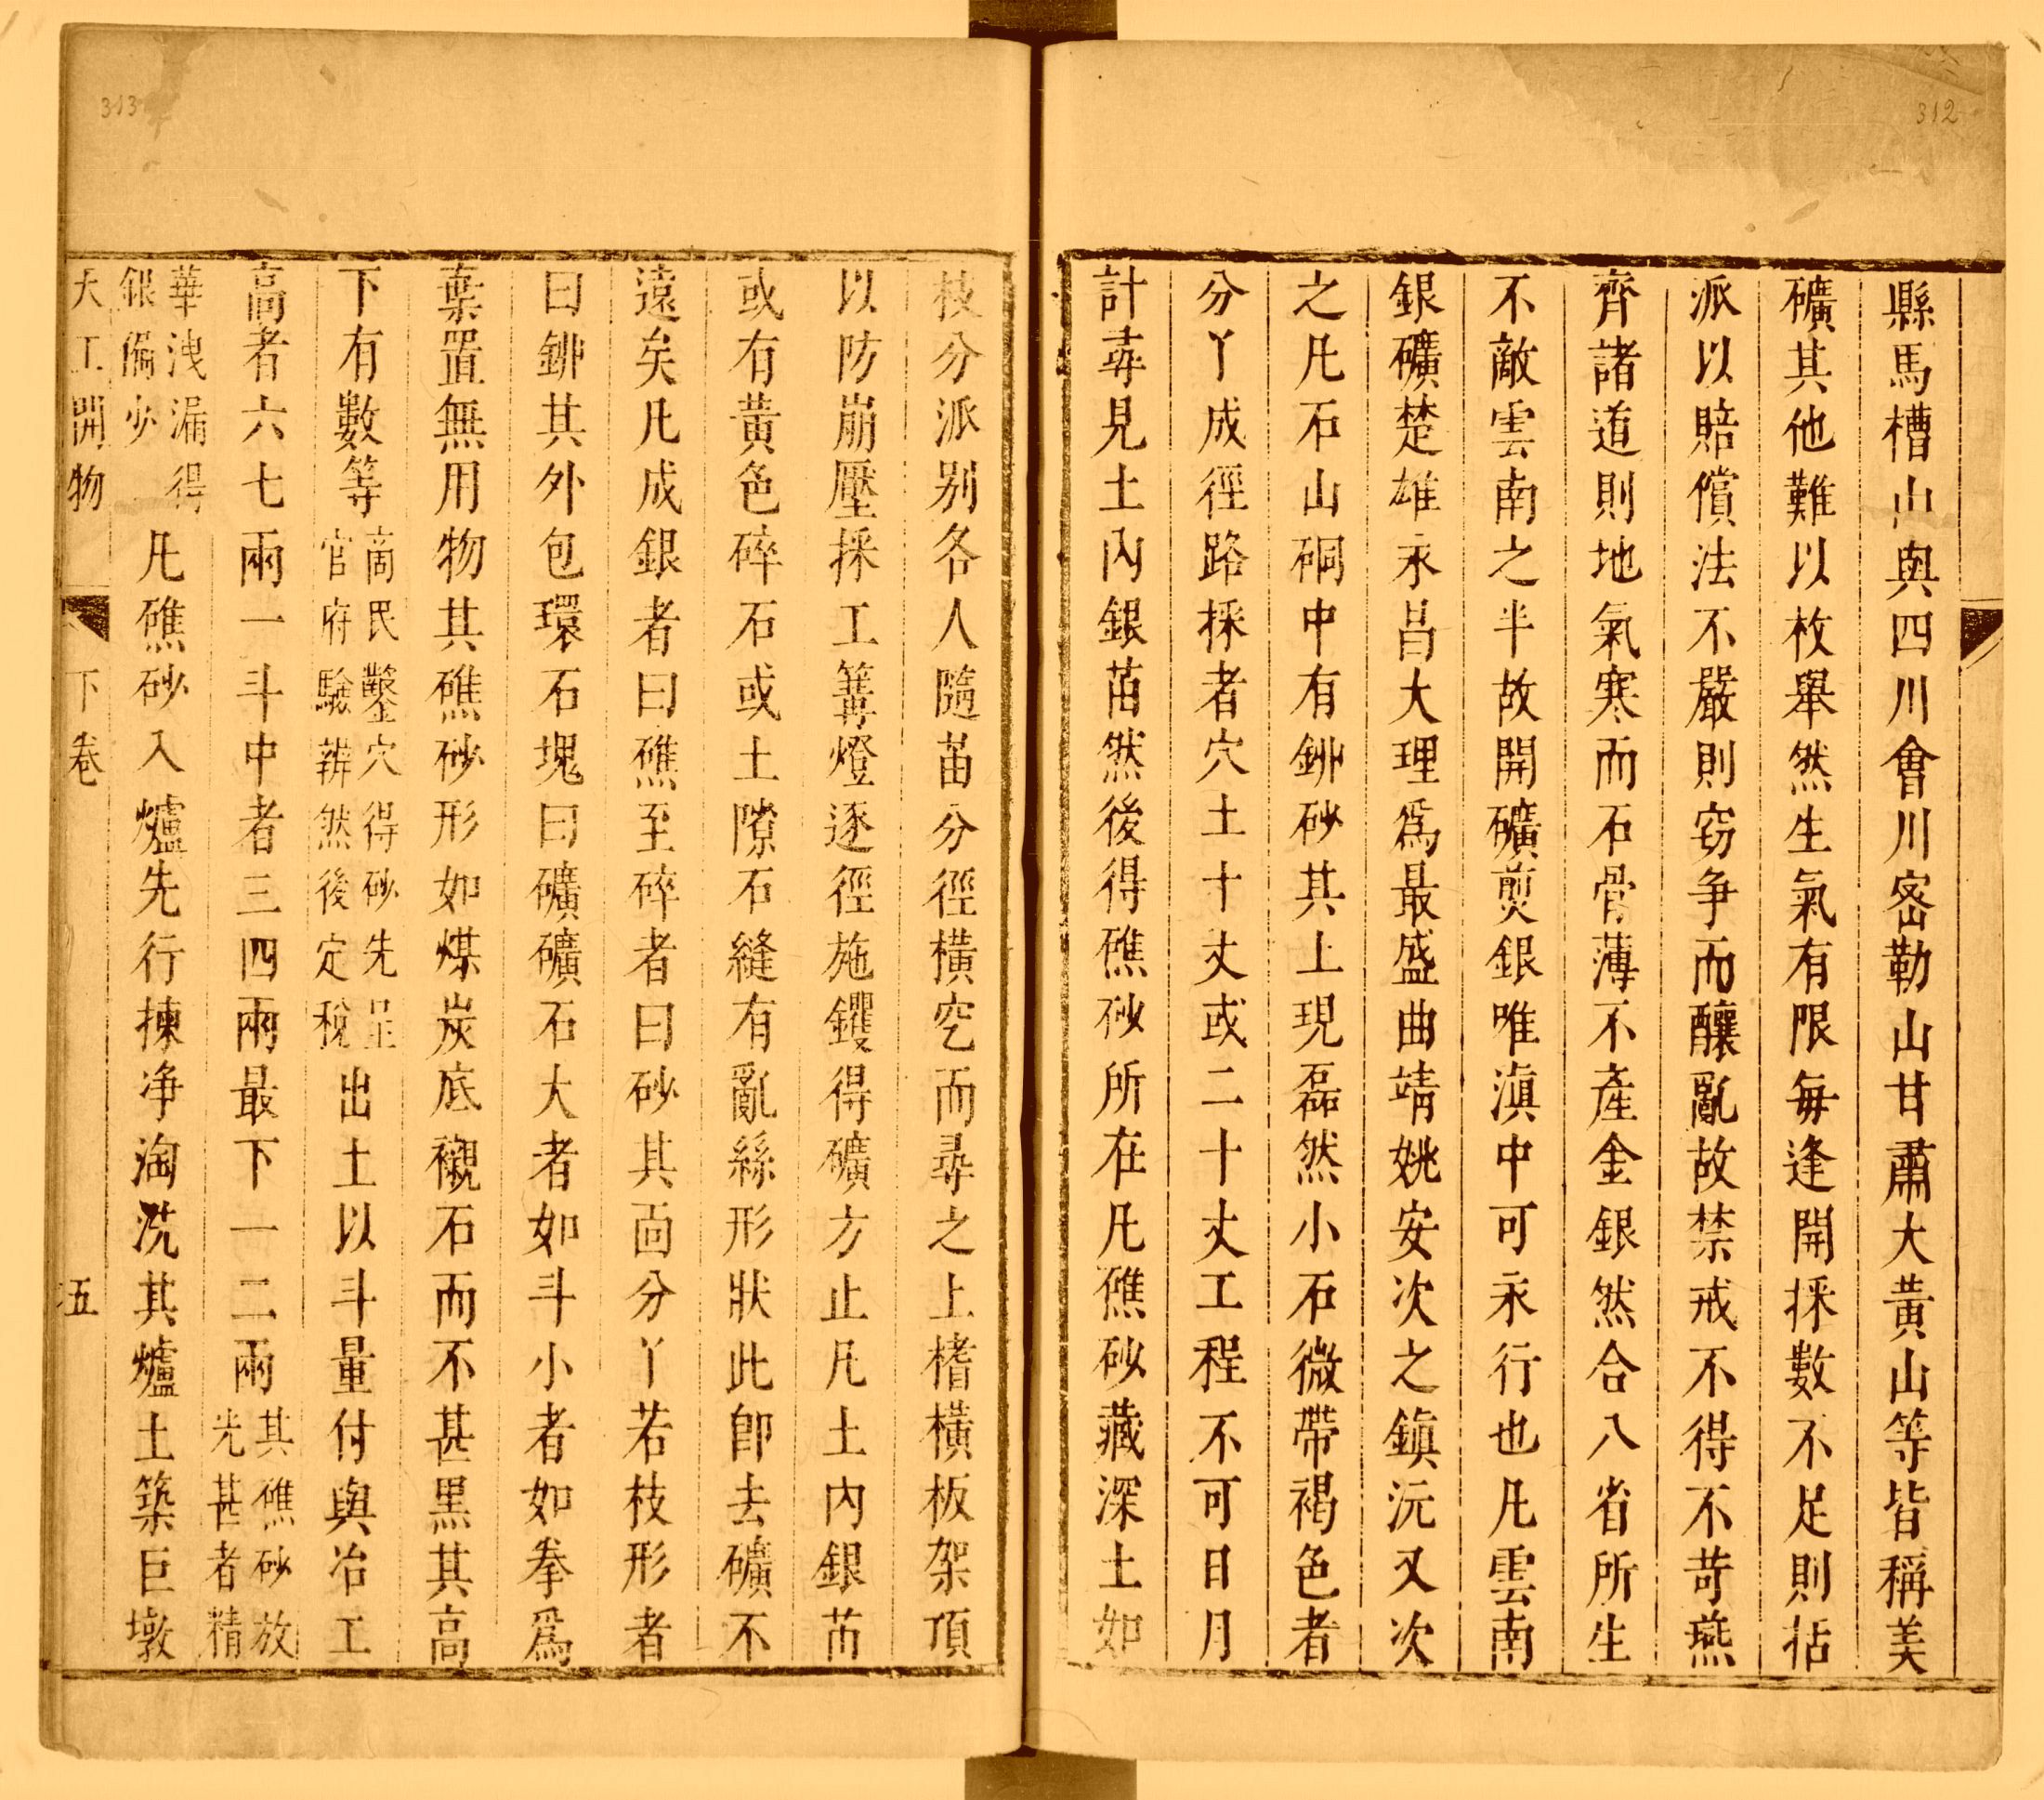 312
縣馬槽山與四川會川密勒山甘肅大黃山等皆稱美
礦其他難以枚舉然生氣有限每逢開採數不足則括
派以賠償法不嚴則窃争而釀亂故禁戒不得不苛燕
齊諸道則地氣寒而石骨薄不產金銀然合八省所生
不敵雲南之半故開礦煎銀唯滇中可永行也凡雲南
銀礦楚雄永昌大理爲最盛曲靖姚安次之鎮沅又次
之凡石山硐中有鉚砂其上現磊然小石微帶褐色者
分丫成徑路採者穴土十丈或二十丈工程不可日月
計尋見土內銀苗然後得礁砂所在凡礁砂藏深土如
313
枝分派别各人隨苗分徑橫穵而尋之上榰橫板架頂
以防崩壓採工篝燈逐徑施钁得礦方止凡土內銀苗
或有黃色碎石或土隙石縫有亂絲形狀此卽去礦不
遠矣凡成銀者曰礁至碎者曰砂其面分丫若枝形者
曰鉚其外包環石塊曰礦礦石大者如斗小者如拳爲
棄置無用物其礁砂形如煤炭底襯石而不甚黑其高
下有數等
商民鑿穴得砂先呈
官府驗辨然後定稅
出土以斗量付與冶工
高者六七兩一斗中者三四兩最下一二兩
其礁砂放
光甚者精
華洩漏得
銀偏少
凡礁砂入爐先行揀净淘洗其爐土築巨墩
天工開物
下卷
五